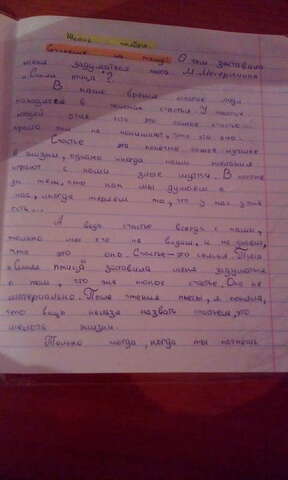 Жизнь и
Сочинение на тему: О чем заставила
меня задуматься пьеса М. Метерлинка
"Синяя птица"?
В наше время многие люди
находятся в поисках счастья. У
людей
просто они не понимают, что это оно.
Счастье это понятие самое нужное
в жизни, однако иногда наши желания
играют с нами злые шутки. В погоне
за тем, что как мы думаем о
нас, иногда теряем то, что у нас уже
есть...
А ведь счастье всегда с нами,
только мы его не видим, и не знаем,
что это оно. Счастье - это семья. Пьеса
"Синяя птица" заставила меня задуматься
о том, что для меня счастье. Оно не
материально. После чтения пьесы, я поняла,
что вещь нельзя назвать счастьем, это
мелочь жизни.
Только тогда, когда ты начнешь